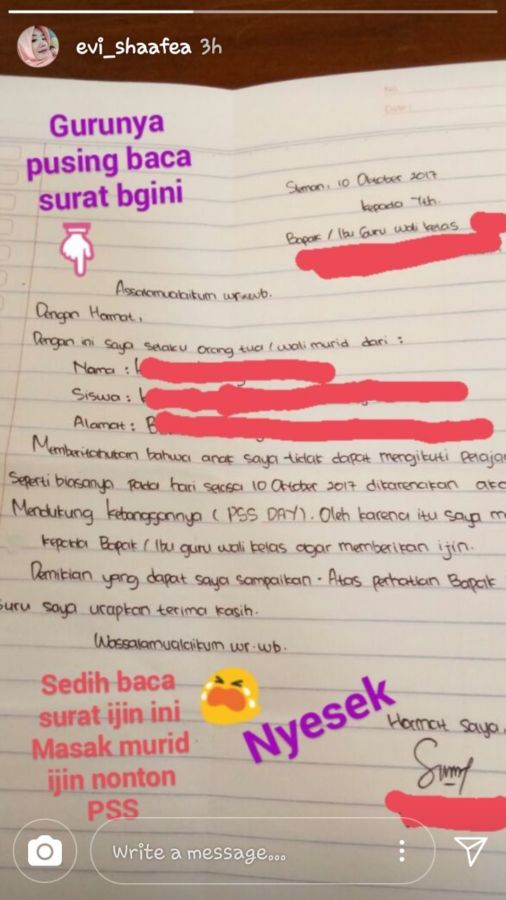 evi_shaafea 3h
No.
Date:
Gurunya
pusing baca
surat bgini
Sleman, 10 Oktober 2017
kepada Yth.
Bapak / Ibu Guru wali kelas
Assalamualaikum wr.wb.
Dengan Hormat,
Dengan ini saya selaku orang tua / wali murid dari :
Nama :
Siswa :
Alamat : B
Memberitahukan bahwa anak saya tidak dapat mengikuti pelaja
Seperti biasanya pada hari selasa 10 Oktober 2017 dikarenakan aka
Mendukung kebanggannya ( PSS DAY). Oleh karena itu saya m
kepada Bapak / Ibu guru wali kelas agar memberikan ijin.
Demikian yang dapat saya sampaikan. Atas perhatian Bapak
Guru saya ucapkan terima kasih.
Wassalamualaikum wr.wb.
Sedih baca
surat ijin ini
Masak murid
ijin nonton
PSS
Nyesek
Hormat saya,
Write a message...